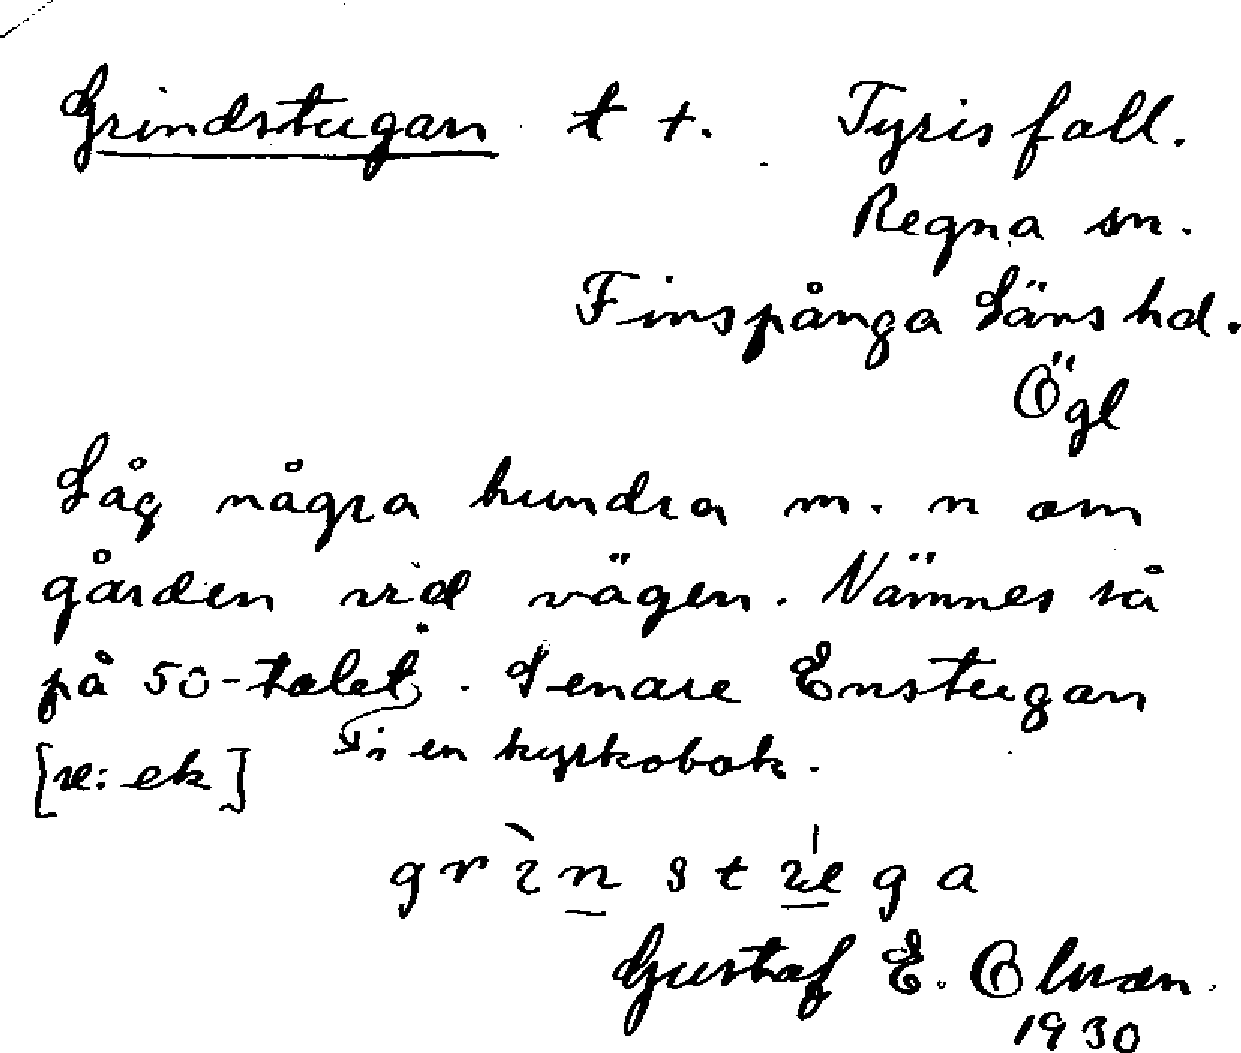 Grindstugan t +. Tyrisfall.
Regna sn.
Finspånga Läns hd.
Ögl
Låg några hundra m. n om
gården vid vägen. Nämnes så
på 50-talet. Senare Enstugan
i en kyrkobok.
[v: ek]
Gustaf E. Olsson.
1930